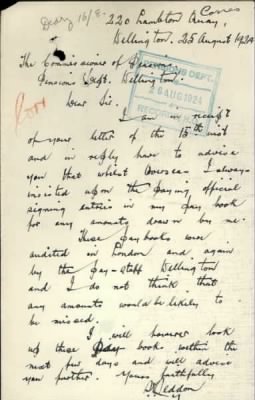 Diary 16/8.
Corres
220 Lambton Quay,
Wellington. 25 August 1924
The Commissioner of Pensions.
Pensions Dept. Wellington.
PENSIONS DEPT.
26 AUG 1924
RECORDS
Dear Sir.
I am in receipt
of your letter of the 15th inst
and in reply have to advise
you that whilst Overseas. I always
insisted upon the paying official
signing entries in my pay book
for any amounts drawn by me.
These pay books were
audited in London and again
by the pay-staff Wellington
and I do not think that
any amounts would be likely to
be missed.
I will however look
up these pay books within the
next few days and will advise
you further. Yours faithfully
Seddon